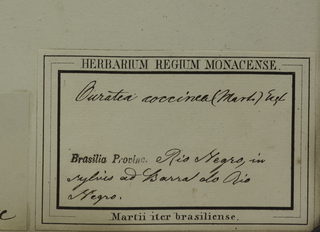 HERBARIUM REGIUM MONACENSE.
Ouratea coccinea (Mart.) Engl
Brasilia Provinc. Rio Negro, in
sylvis ad Barra do Rio
Negro.
Martii iter brasiliense.